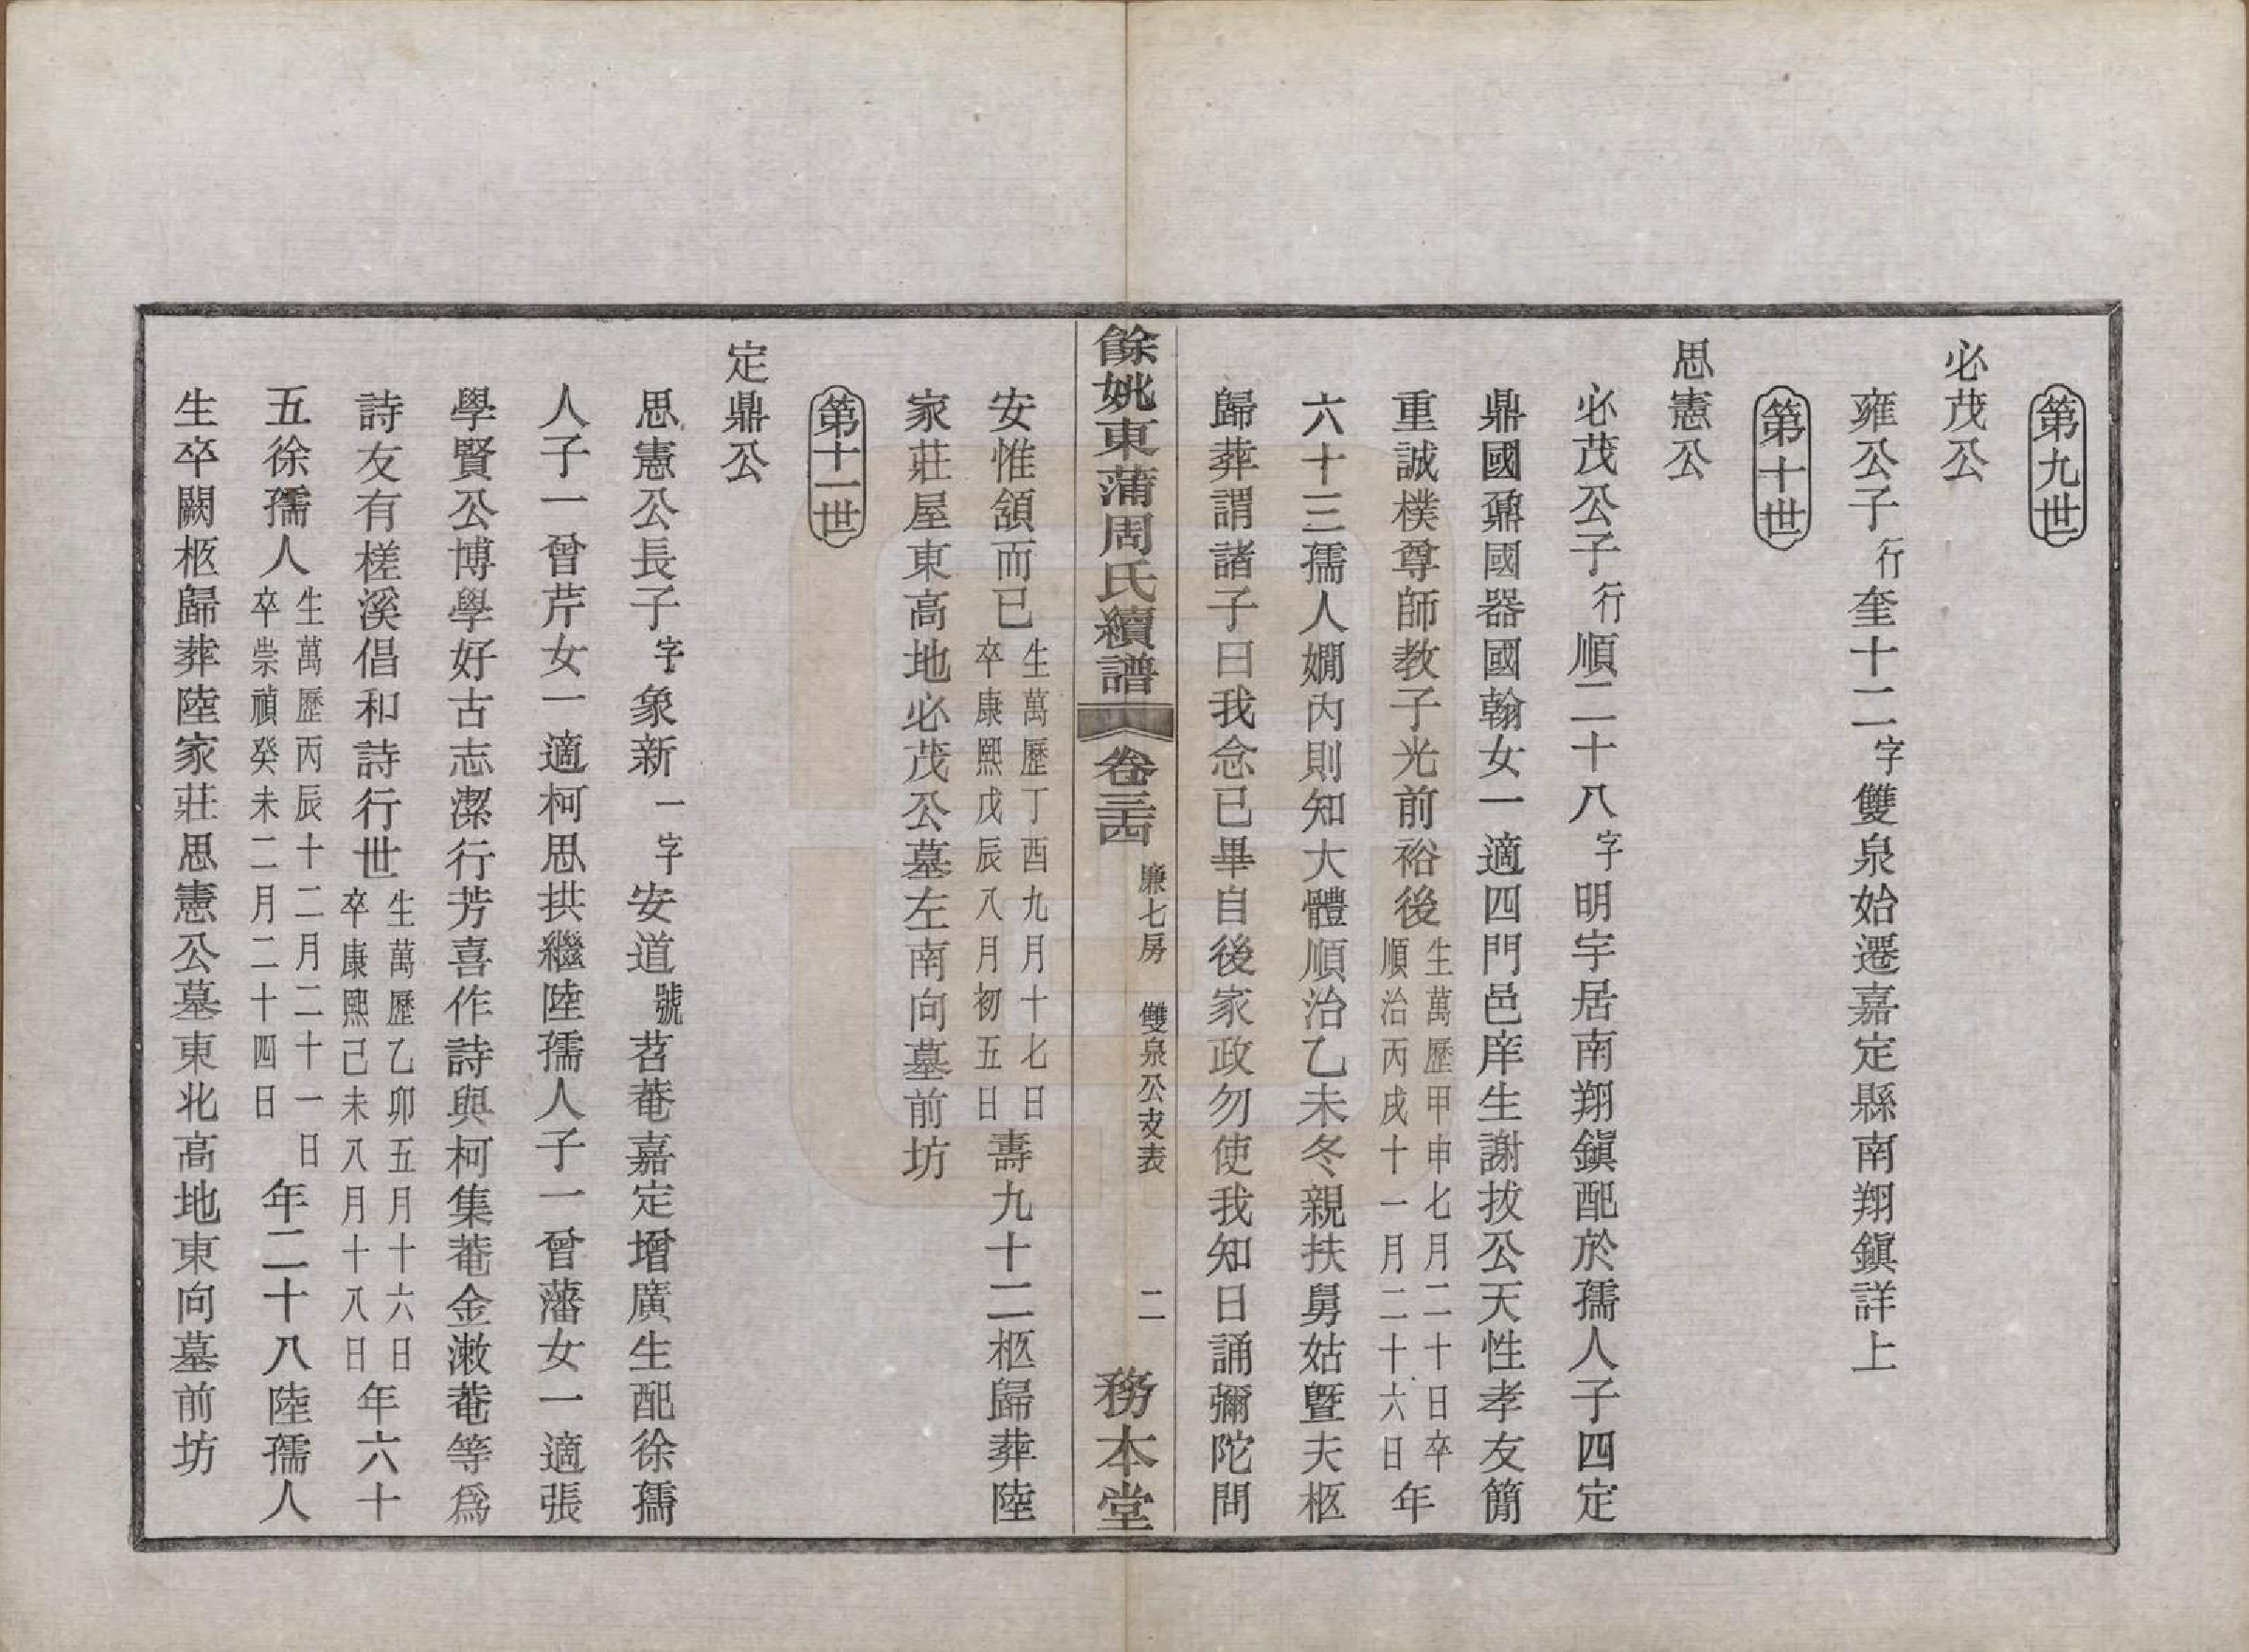 第九世
必茂公
雍公子行奎十二字雙泉始遷嘉定縣南翔鎭詳上
第十世
思憲公
必茂公子行順二十八字明宇居南翔鎭配於孺人子四定
鼎國鼐國器國翰女一適四門邑庠生謝拔公天性孝友簡
重誠樸尊師教子光前裕後生萬歷甲申七月二十日卒順治丙戌十一月二十六日年
六十三孺人嫺內則知大體順治乙未冬親扶舅姑曁夫柩
歸葬謂諸子曰我念已畢自後家政勿使我知日誦彌陀問
餘姚東蒲周氏續譜 卷三四 廉七房 雙泉公支表 二 務本堂
安惟頷而已生萬歷丁酉九月十七日卒康熙戊辰八月初五日壽九十二柩歸葬陸
家莊屋東高地必茂公墓左南向墓前坊
第十一世
定鼎公
思憲公長子字象新一字安道號苕菴嘉定增廣生配徐孺
人子一曾芹女一適柯思拱繼陸孺人子一曾藩女一適張
學賢公博學好古志潔行芳喜作詩與柯集菴金漱菴等爲
詩友有槎溪倡和詩行世生萬歷乙卯五月十六日卒康熙己未八月十八日年六十
五徐孺人生萬歷丙辰十二月二十一日卒崇禎癸未二月二十四日年二十八陸孺人
生卒闕柩歸葬陸家莊思憲公墓東北高地東向墓前坊